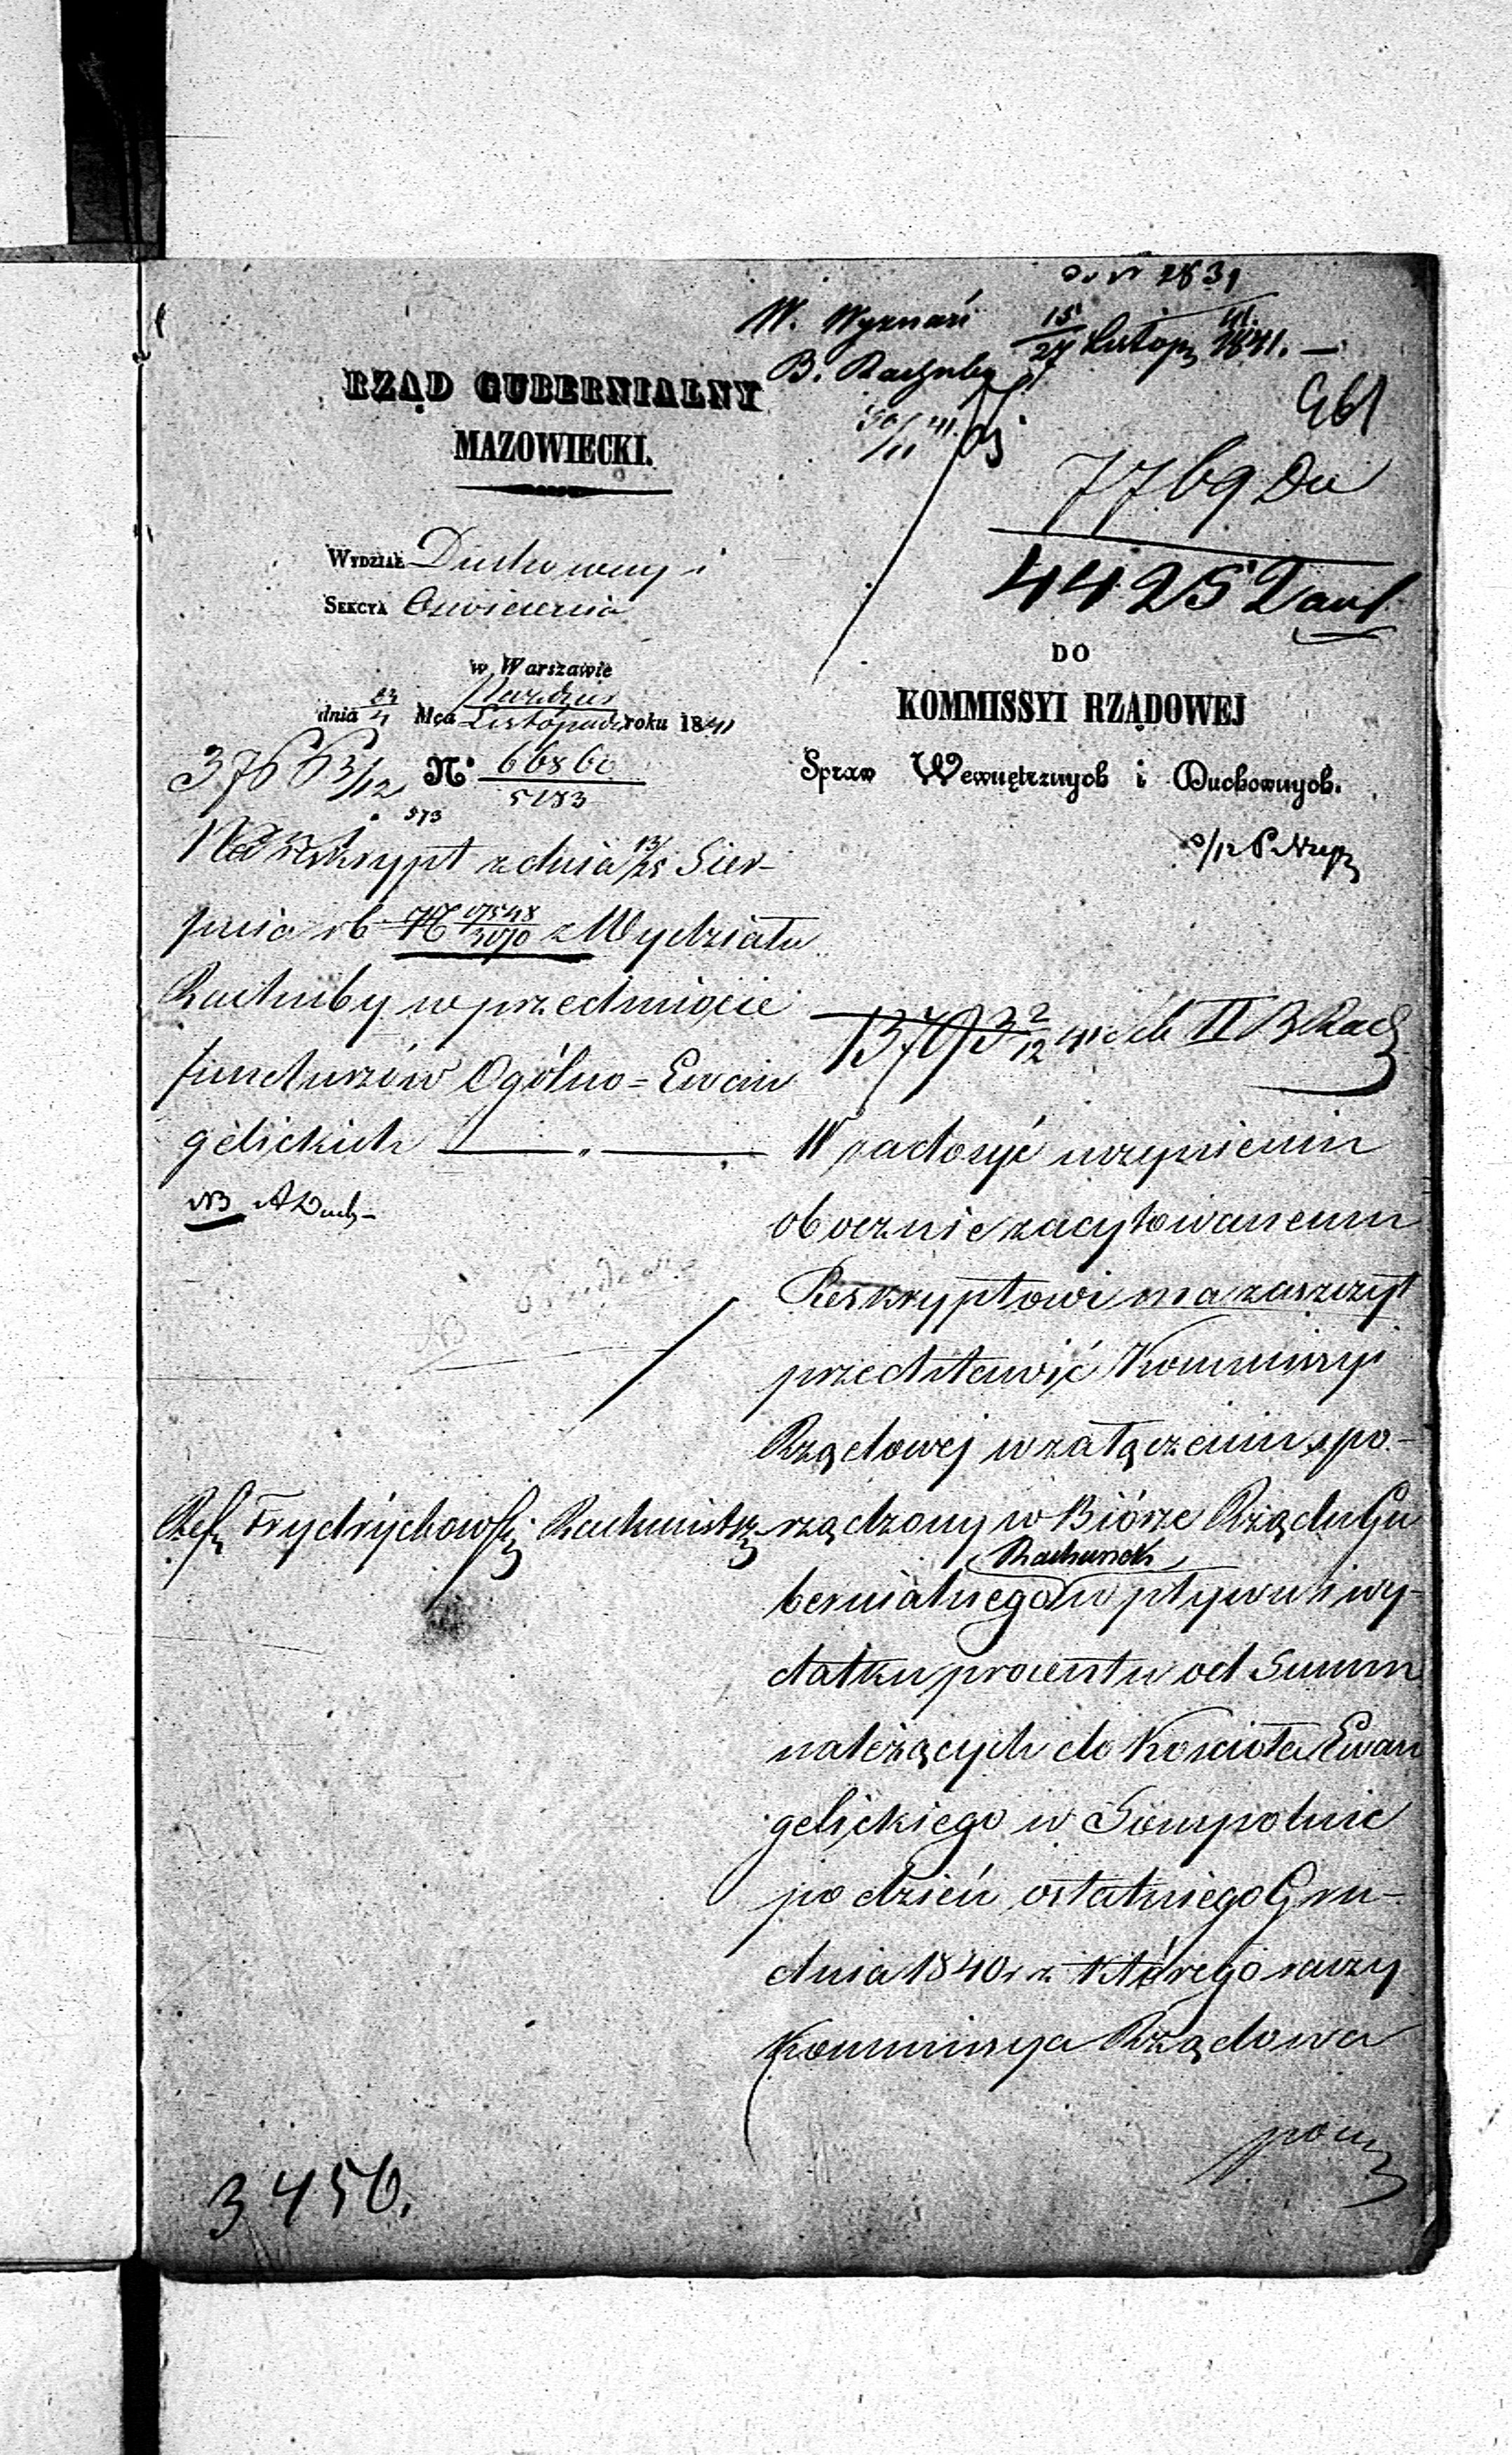 2831
W. Wyznań 15/27 Listop 1841. —
B. Rachuby
30/11 41.
961
RZĄD GUBERNIALNY
MAZOWIECKI.
7769 Du
4425
WYDZIAŁ Duchowny i
SEKCYA Oświecenia
w Warszawie
dnia 23/4 Mca Paździer/Listopada roku 1841
37663/12 N° 66860/5183
573
DO
KOMMISSYI RZĄDOWEJ
Spraw Wewnętrznych i Duchownych.
Na reskrypt z dnia 13/25 Sier-
pnia rb N 17548/3070 z Wydziału
Rachuby w przedmiocie
funduszów Ogólno=Ewan
gelickich
NB A Duch-
13793 2/12 41 II B Rach
W zadosyć uczynieniu
obocznie zacytowanemu
Reskryptowi ma zaszczyt
przedstawić Kommissyi
Rządowej w załączeniu spo-
rządzony w Biórze Rządu Gu
bernialnego Rachunek wpływu i wy-
datku procentu od Summ
należących do Kościoła Ewan
gelickiego w Sompolnie
po dzień ostatniego Gru-
dnia 1840 r z którego raczy
Kommissya Rządowa
Ref Frydrychowski Rachmistrz
3456.